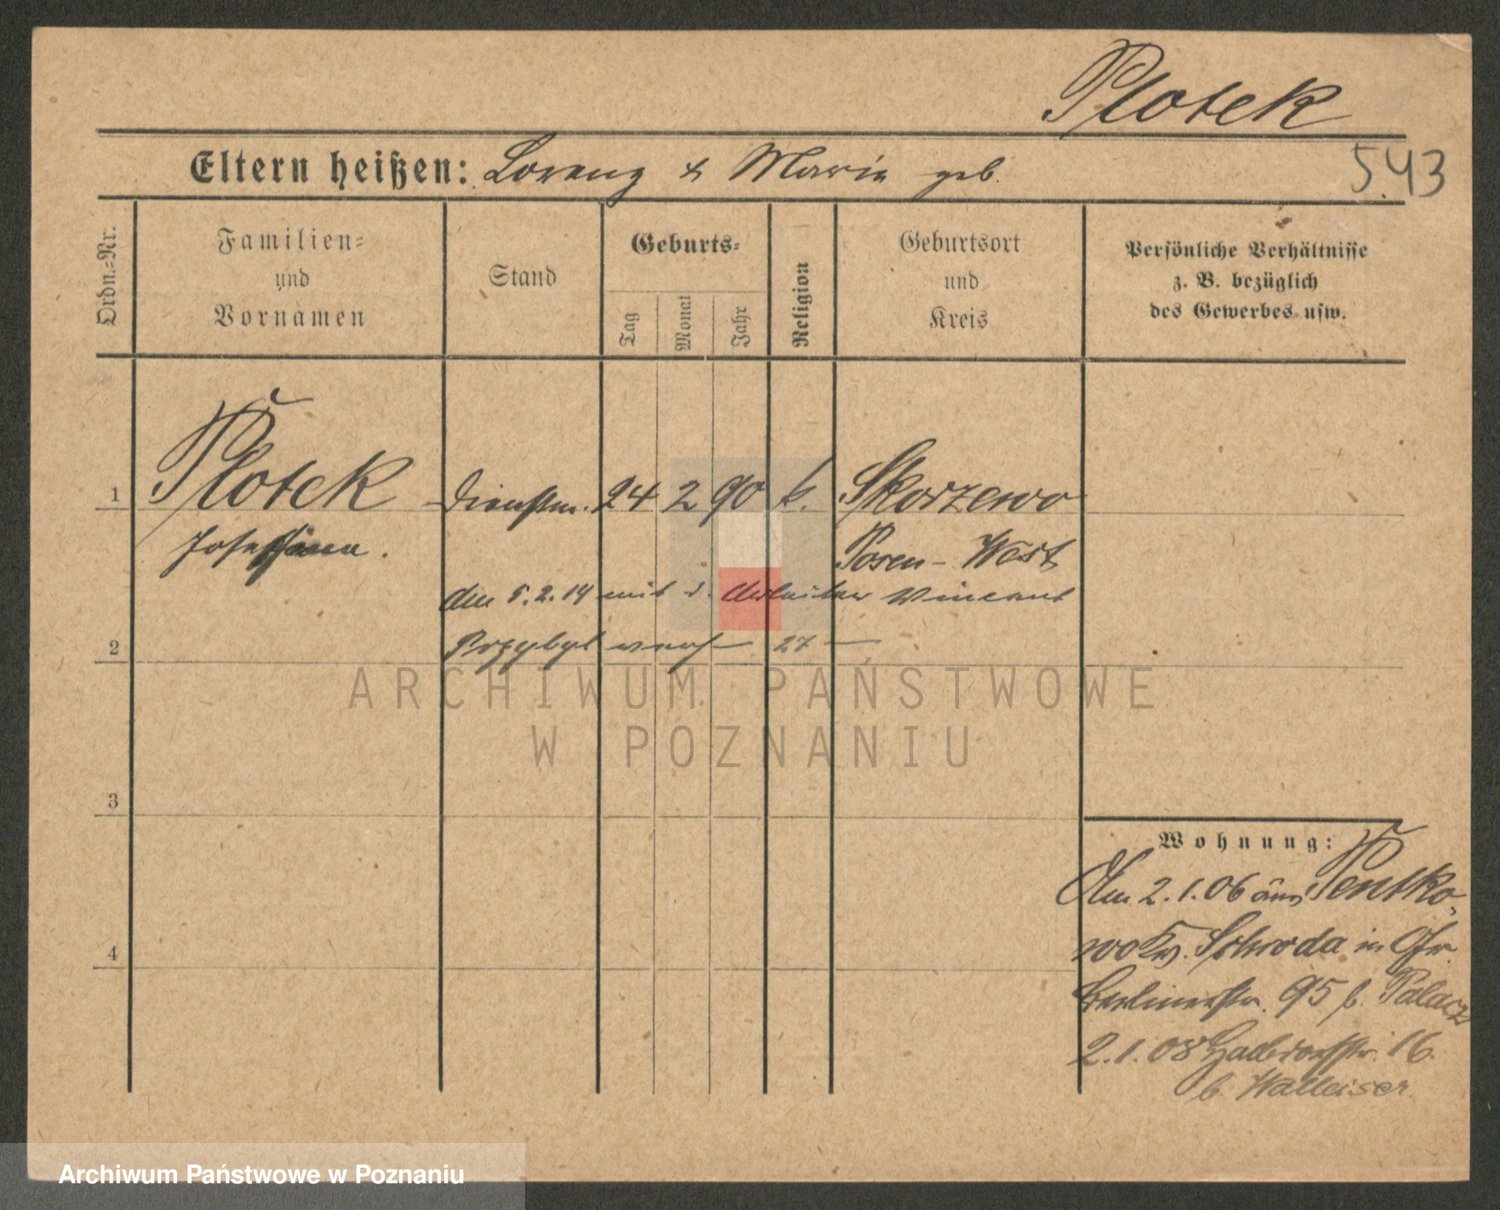 Plotek
Eltern heißen: Lorenz & Maria geb.
543
Ordn.=Nr.
Familien=
und
Vornamen
Stand
Geburts=
Tag
Monat
Jahr
Religion
Geburtsort
und
Kreis
Persönliche Verhältnisse
z. B. bezüglich
des Gewerbes usw.
1
Plotek
Dienstm. 24 2 90 k. Skorzewo
Posen-West
den 5.2.14 mit d. Arbeiter Vincent
2
Przybyl verh 27
3
4
Wohnung:
Am 2.1.06 aus Pentko,
wo Kr. Schroda in Gr.
Berlinerstr. 95 b. Palacz
2.1.08 16.
b. Walleiser.
ARCHIWUM PAŃSTWOWE
W POZNANIU
Archiwum Państwowe w Poznaniu